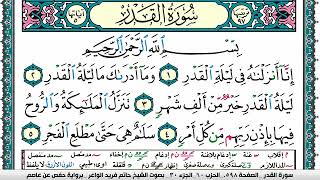 سُورَةُ الْقَدْرِ
بِسْمِ اللَّهِ الرَّحْمَٰنِ الرَّحِيمِ
إِنَّا أَنزَلْنَٰهُ فِي لَيْلَةِ الْقَدْرِ ١ وَمَا أَدْرَىٰكَ مَا لَيْلَةُ الْقَدْرِ ٢
لَيْلَةُ الْقَدْرِ خَيْرٌ مِّنْ أَلْفِ شَهْرٍ ٣ تَنَزَّلُ الْمَلَٰٓئِكَةُ وَالرُّوحُ
فِيهَا بِإِذْنِ رَبِّهِم مِّن كُلِّ أَمْرٍ ٤ سَلَٰمٌ هِيَ حَتَّىٰ مَطْلَعِ الْفَجْرِ ٥
سورة القدر الصفحة ٥٩٨ - الجزء ٣٠ بصوت الشيخ حاتم فريد الواعر - برواية حفص عن عاصم